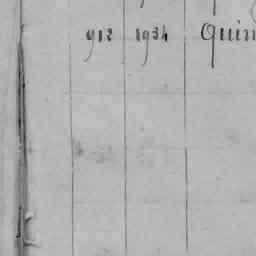 912 1934 Quin